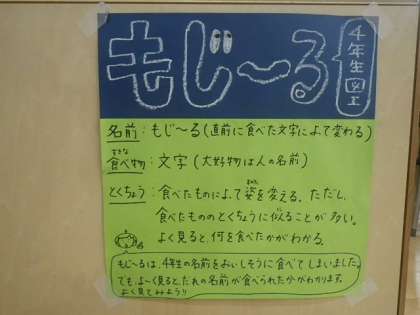 もじ〜る
4年生図工
名前：もじ〜る(直前に食べた文字によって変わる)
すきな
食べ物：文字(大好物は人の名前)
とくちょう：食べたものによって姿を変える。ただし、
食べたもののとくちょうに似ることが多い。
よく見ると、何を食べたかがわかる。
もじ〜るは、4年生の名前をおいしそうに食べてしまいました。
でも、よ〜く見ると、だれの名前が食べられたかがわかります。
よく見てみよう!!